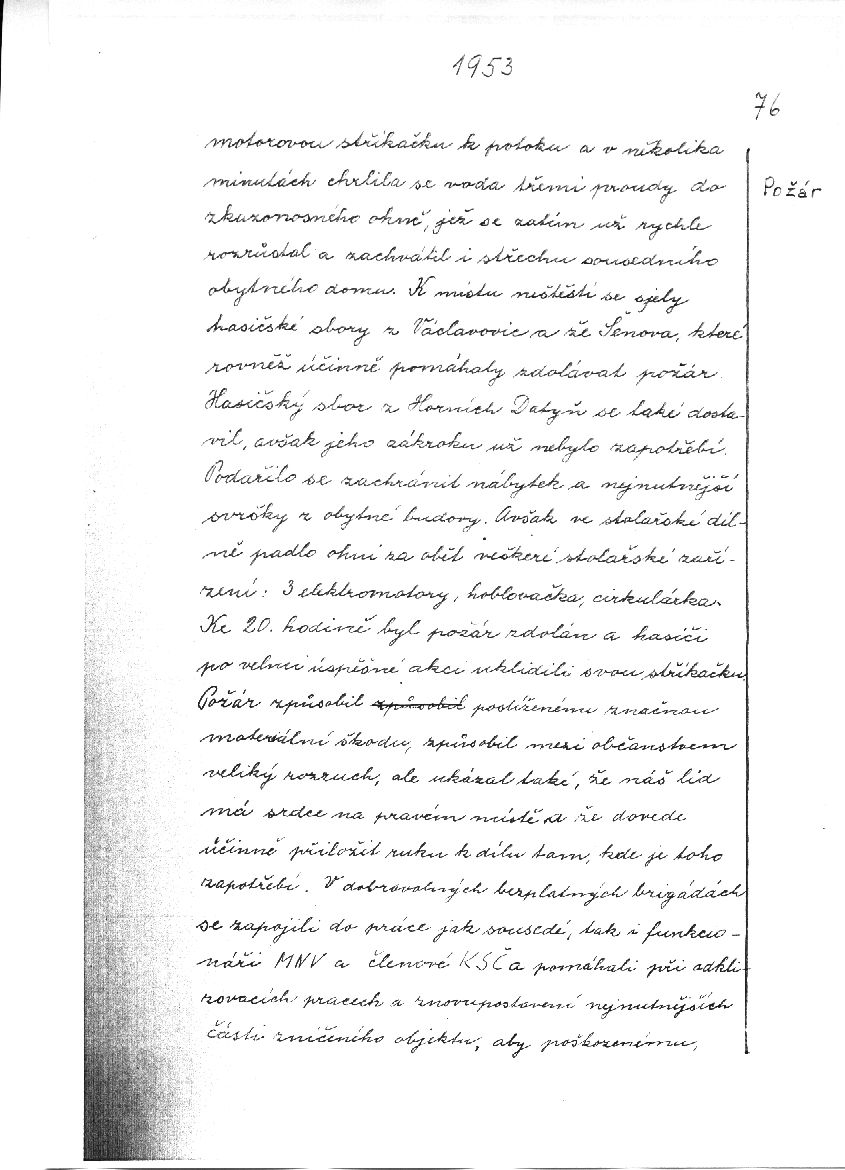 1953
76
motorovou stříkačku k potoku a v několika
Požár
minutách chrlila se voda třemi proudy do
zkuzonosného ohně, jež se zatím už rychle
rozrůstal a zachvátil i střechu sousedního
obytného domu. K místu neštěstí se sjely
hasičské sbory z Václavovic a ze Šenova, které
rovněž účinně pomáhaly zdolávat požár.
Hasičský sbor z Horních Datyň se také dosta-
vil, avšak jeho zákroku už nebylo zapotřebí.
Podařilo se zachránit nábytek a nejnutnější
svršky z obytné budovy. Avšak ve stolařské díl-
ně padlo ohni za oběť veškeré stolařské zaří-
zení: 3 elektromotory, hoblovačka, cirkulárka.
Ke 20. hodině byl požár zdolán a hasiči
po velmi úspěšné akci uklidili svou stříkačku.
Požár způsobil způsobil postiženému značnou
materiální škodu, způsobil mezi občanstvem
veliký rozruch, ale ukázal také, že náš lid
má srdce na pravém místě a že dovede
účinně přiložit ruku k dílu tam, kde je toho
zapotřebí. V dobrovolných bezplatných brigádách
se zapojili do práce jak sousedé, tak i funkcio-
náři MNV a členové KSČ a pomáhali při odkli-
zovacích pracech a znovupostavení nejnutnějších
částí zničeného objektu, aby poškozenému,